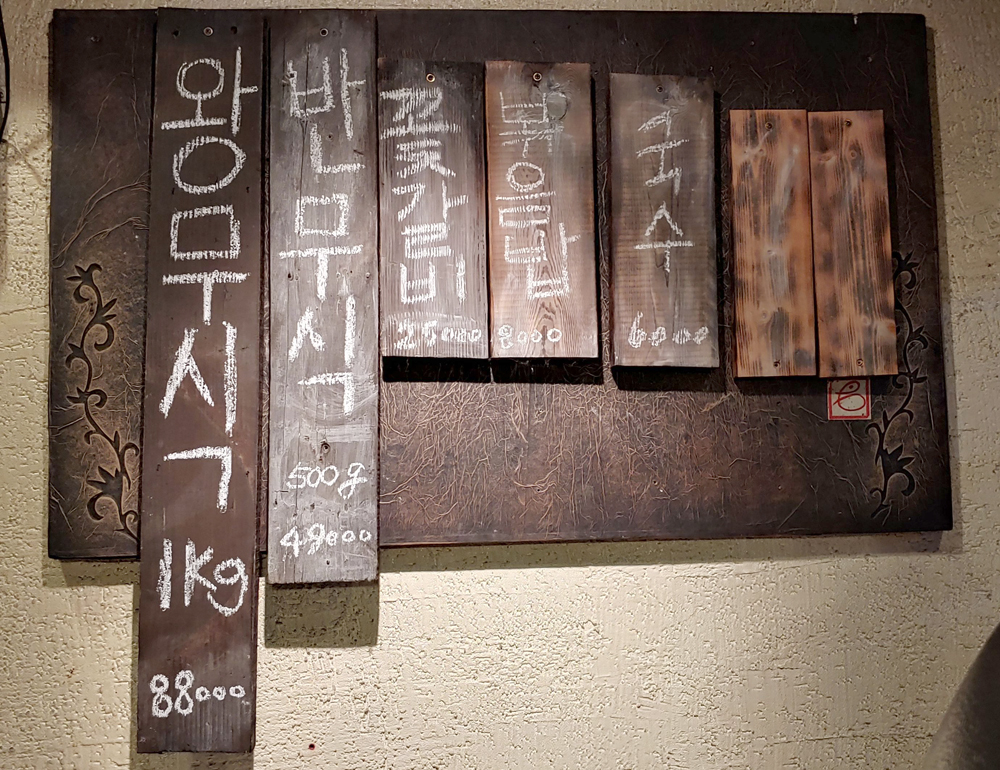 왕무식
1Kg
88000
반무식
500g
49000
꽃갈비
25000
볶음밥
8000
국수
6000